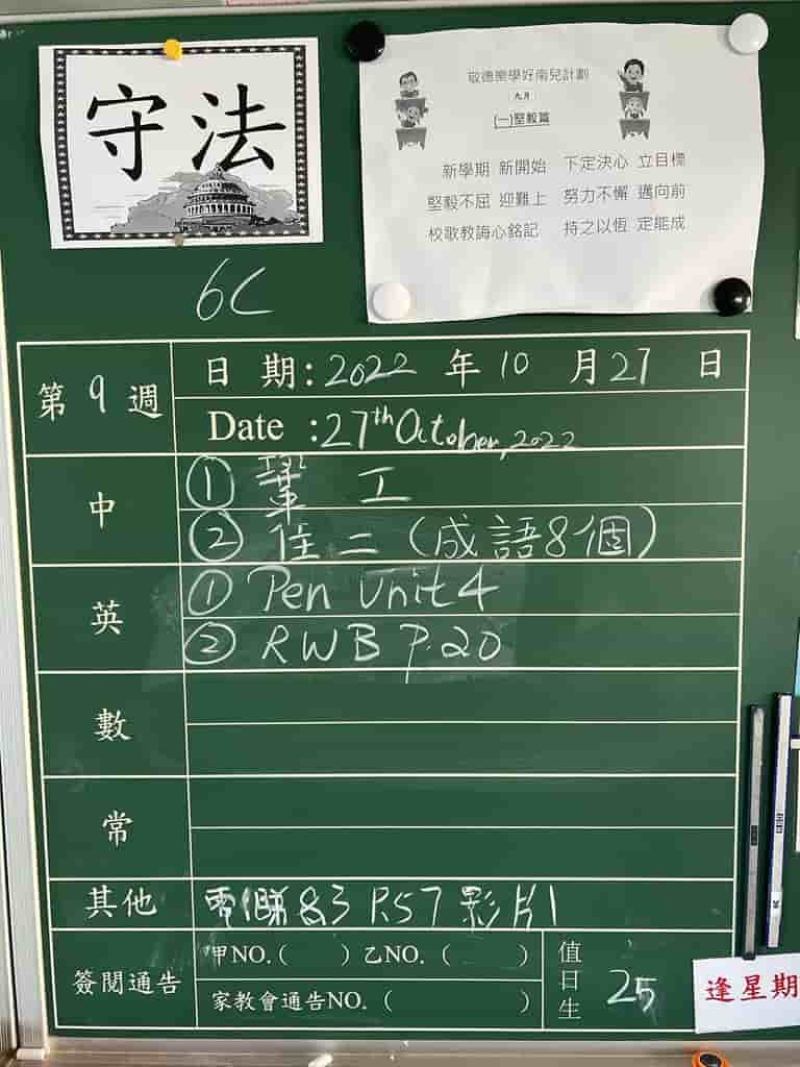 守法
敬德樂學好南兒計劃
九月
(一)堅毅篇
新學期 新開始 下定決心 立目標
堅毅不屈 迎難上 努力不懈 邁向前
校歌教誨心銘記 持之以恆 定能成
6C
第9週
日期:2022年10月27日
Date :27th October, 2022
中
① 工
② 作二(成語8個)
英
① Pen Unit 4
② RWB P.20
數
常
其他
P.57影片1
簽閱通告
甲NO.( ) 乙NO.( )
家教會通告NO.( )
值日生 25
逢星期